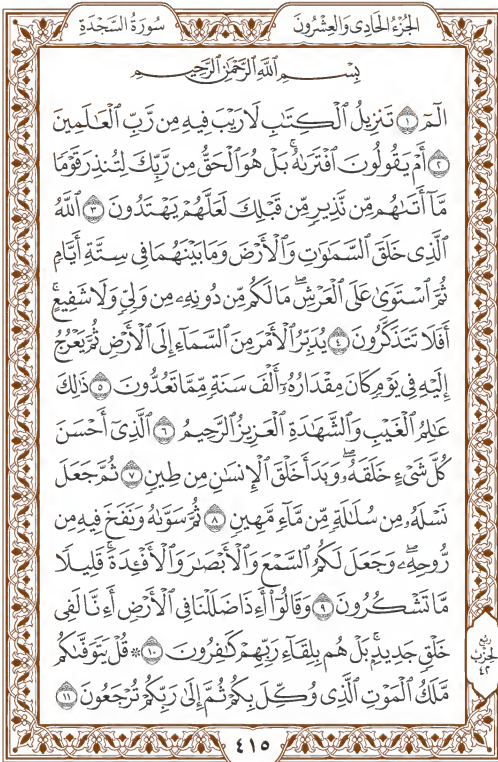 الجُزْءُ الحَادِى وَالعِشْرُونَ
سُورَةُ السَّجْدَةِ
بِسْمِ اللَّهِ الرَّحْمَٰنِ الرَّحِيمِ
الٓمٓ ١ تَنزِيلُ ٱلْكِتَٰبِ لَا رَيْبَ فِيهِ مِن رَّبِّ ٱلْعَٰلَمِينَ
٢ أَمْ يَقُولُونَ ٱفْتَرَىٰهُۚ بَلْ هُوَ ٱلْحَقُّ مِن رَّبِّكَ لِتُنذِرَ قَوْمًا
مَّآ أَتَىٰهُم مِّن نَّذِيرٍ مِّن قَبْلِكَ لَعَلَّهُمْ يَهْتَدُونَ ٣ ٱللَّهُ
ٱلَّذِى خَلَقَ ٱلسَّمَٰوَٰتِ وَٱلْأَرْضَ وَمَا بَيْنَهُمَا فِى سِتَّةِ أَيَّامٍ
ثُمَّ ٱسْتَوَىٰ عَلَى ٱلْعَرْشِۖ مَا لَكُم مِّن دُونِهِۦ مِن وَلِىٍّ وَلَا شَفِيعٍۚ
أَفَلَا تَتَذَكَّرُونَ ٤ يُدَبِّرُ ٱلْأَمْرَ مِنَ ٱلسَّمَآءِ إِلَى ٱلْأَرْضِ ثُمَّ يَعْرُجُ
إِلَيْهِ فِى يَوْمٍ كَانَ مِقْدَارُهُۥٓ أَلْفَ سَنَةٍ مِّمَّا تَعُدُّونَ ٥ ذَٰلِكَ
عَٰلِمُ ٱلْغَيْبِ وَٱلشَّهَٰدَةِ ٱلْعَزِيزُ ٱلرَّحِيمُ ٦ ٱلَّذِىٓ أَحْسَنَ
كُلَّ شَىْءٍ خَلَقَهُۥۖ وَبَدَأَ خَلْقَ ٱلْإِنسَٰنِ مِن طِينٍ ٧ ثُمَّ جَعَلَ
نَسْلَهُۥ مِن سُلَٰلَةٍ مِّن مَّآءٍ مَّهِينٍ ٨ ثُمَّ سَوَّىٰهُ وَنَفَخَ فِيهِ مِن
رُّوحِهِۦۖ وَجَعَلَ لَكُمُ ٱلسَّمْعَ وَٱلْأَبْصَٰرَ وَٱلْأَفْـِٔدَةَۚ قَلِيلًا
مَّا تَشْكُرُونَ ٩ وَقَالُوٓا۟ أَءِذَا ضَلَلْنَا فِى ٱلْأَرْضِ أَءِنَّا لَفِى
خَلْقٍ جَدِيدٍۭۚ بَلْ هُم بِلِقَآءِ رَبِّهِمْ كَٰفِرُونَ ١٠ ۞ قُلْ يَتَوَفَّىٰكُم
مَّلَكُ ٱلْمَوْتِ ٱلَّذِى وُكِّلَ بِكُمْ ثُمَّ إِلَىٰ رَبِّكُمْ تُرْجَعُونَ ١١
ربع
الحزب
٤٢
٤١٥